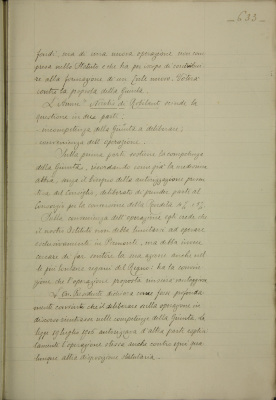 633
fondi, ma di una nuova operazione non com
presa nello Statuto e che ha per scopo di contribui
re alla formazione di un forte nuovo. Voterà
contro la proposta della Giunta.
L'Annue. Nicolis di Robilant scinde la
questione in due parti:
incompetenza della Giunta a deliberare;
convenienza dell'operazione.
Sulla prima parte sostiene la competenza
della Giunta, ricorda che la medesima
abbia, senza il bisogno della autorizzazione preven
tiva del Consiglio, deliberato di prender parte al
Consorzio per la conversione della Rendita
Sulla convenienza dell'operazione egli crede che
il nostro Istituto non debba limitarsi ad operare
esclusivamente in Piemonte, ma debba invece
cercare di far sentire la sua azione anche nel
le più lontane regioni del Regno; ha la convin
zione che l'operazione proposta sia vantaggiosa
dichiara essere profonda
mente convinto che il deliberare sulla operazione in
discorso rientrasse nelle competenze della Giunta. La
legge 15 luglio 1906 autorizzava d'altra parte esplici
tamente l'operazione stessa anche contro ogni
disposizione statutaria.